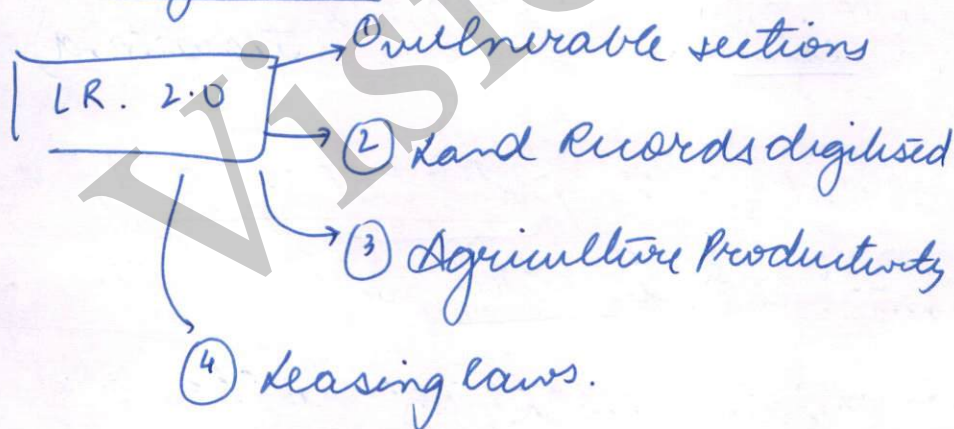 ① vulnerable sections
LR. 2.0
② Land Records digitised
③ Agriculture Productivity
④ Leasing laws.
Visio